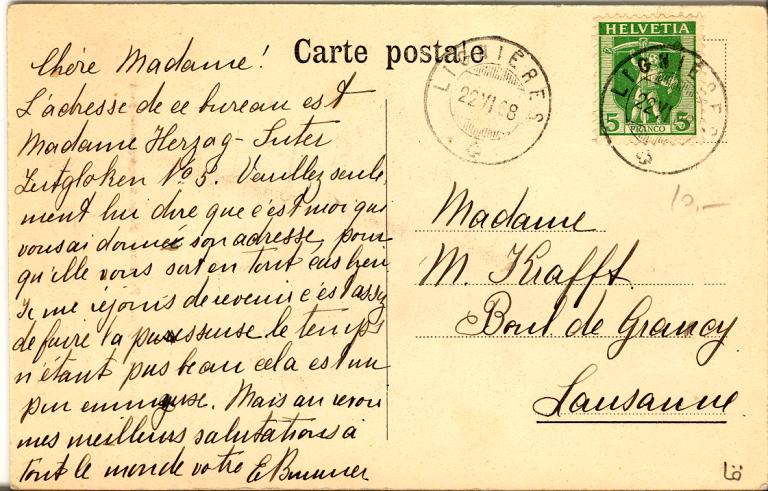 Carte postale
HELVETIA
5 FRANCO 5
LIGNIÈRES
22 VI 08
LIGNIÈRES
22 VI
Chère Madame!
L'adresse de ce bureau est
Madame Herzog-Suter
No 5. Veuillez seule,
ment lui dire que c'est moi qui
vous ai donnée son adresse, pour
qu'elle vous sert en tout cas bien
Je me réjouis de revenir c'est assez
de faire la paresseuse le temps
n'étant pas beau cela est un
peu ennuyeuse. Mais au revoir
mes meilleurs salutations à
tout le monde votre E Brunner
10,-
Madame
M. Krafft
Boul de Grancy
Lausanne